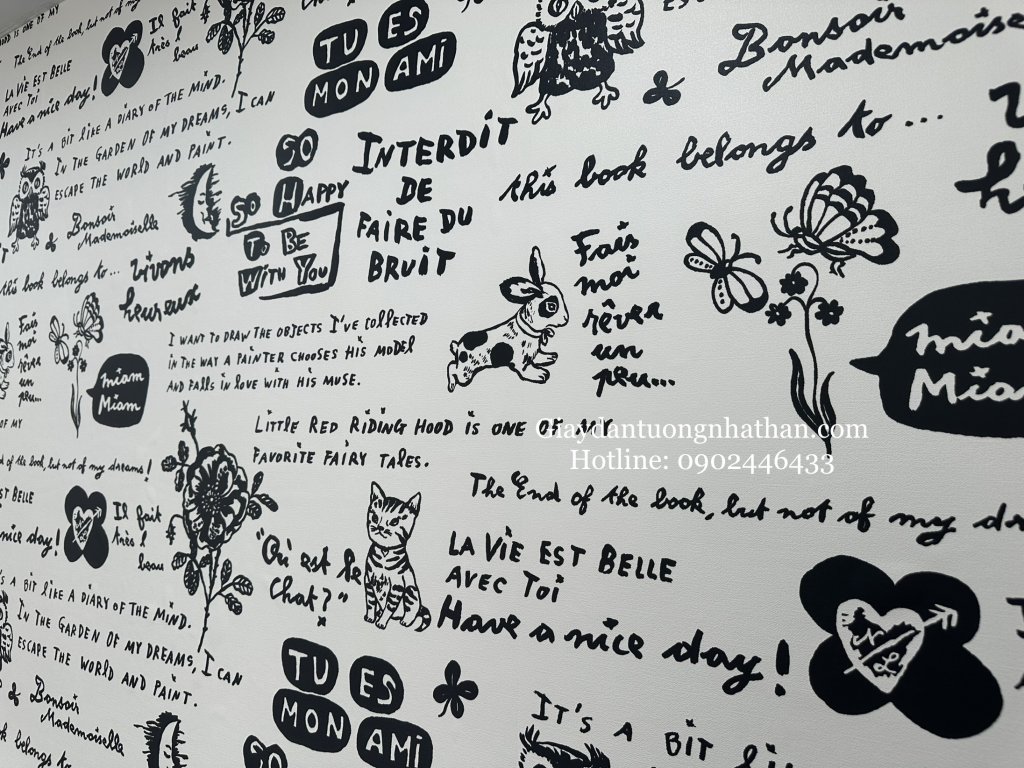 IS ONE OF MY
The End of the book, but not of my
LA VIE EST BELLE
AVEC TOI
Have a nice day!
Il fait
très
beau
TU ES
MON AMI
Bonsoir
Mademoise
IT'S A BIT LIKE A DIARY OF THE MIND.
IN THE GARDEN OF MY DREAMS, I CAN
ESCAPE THE WORLD AND PAINT.
Bonsoir
Mademoiselle
SO
SO HAPPY
TO BE
WITH YOU
INTERDIT
DE
FAIRE DU
BRUIT
this book belongs to...
this book belongs to...
vivons
heureux
Fais
moi
rêver
un
peu...
miam
Miam
I WANT TO DRAW THE OBJECTS I'VE COLLECTED
IN THE WAY A PAINTER CHOOSES HIS MODEL
AND FALLS IN LOVE WITH HIS MUSE.
Fais
moi
rêver
un
peu...
mia
Miam
OF MY
LITTLE RED RIDING HOOD IS ONE OF MY
FAVORITE FAIRY TALES.
Giaydantuongnhathan.com
Hotline: 0902446433
of the book, but not of my dreams!
EST BELLE
nice day!
Il fait
très
beau
The End of the book, but not of my dr
"Où est le
Chat?"
LA VIE EST BELLE
AVEC TOI
Have a nice day!
A BIT LIKE A DIARY OF THE MIND.
IN THE GARDEN OF MY DREAMS, I CAN
ESCAPE THE WORLD AND PAINT.
Bonsoir
Mademoiselle
book belongs to...
TU ES
MON AMI
SO
IT'S A BIT LI